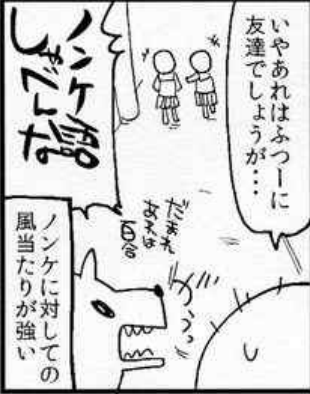 いやあれはふつーに
友達でしょうが・・・
ノンケ
しゃべんな
だまれ
あれは
百合
ノンケに対しての
風当たりが強い